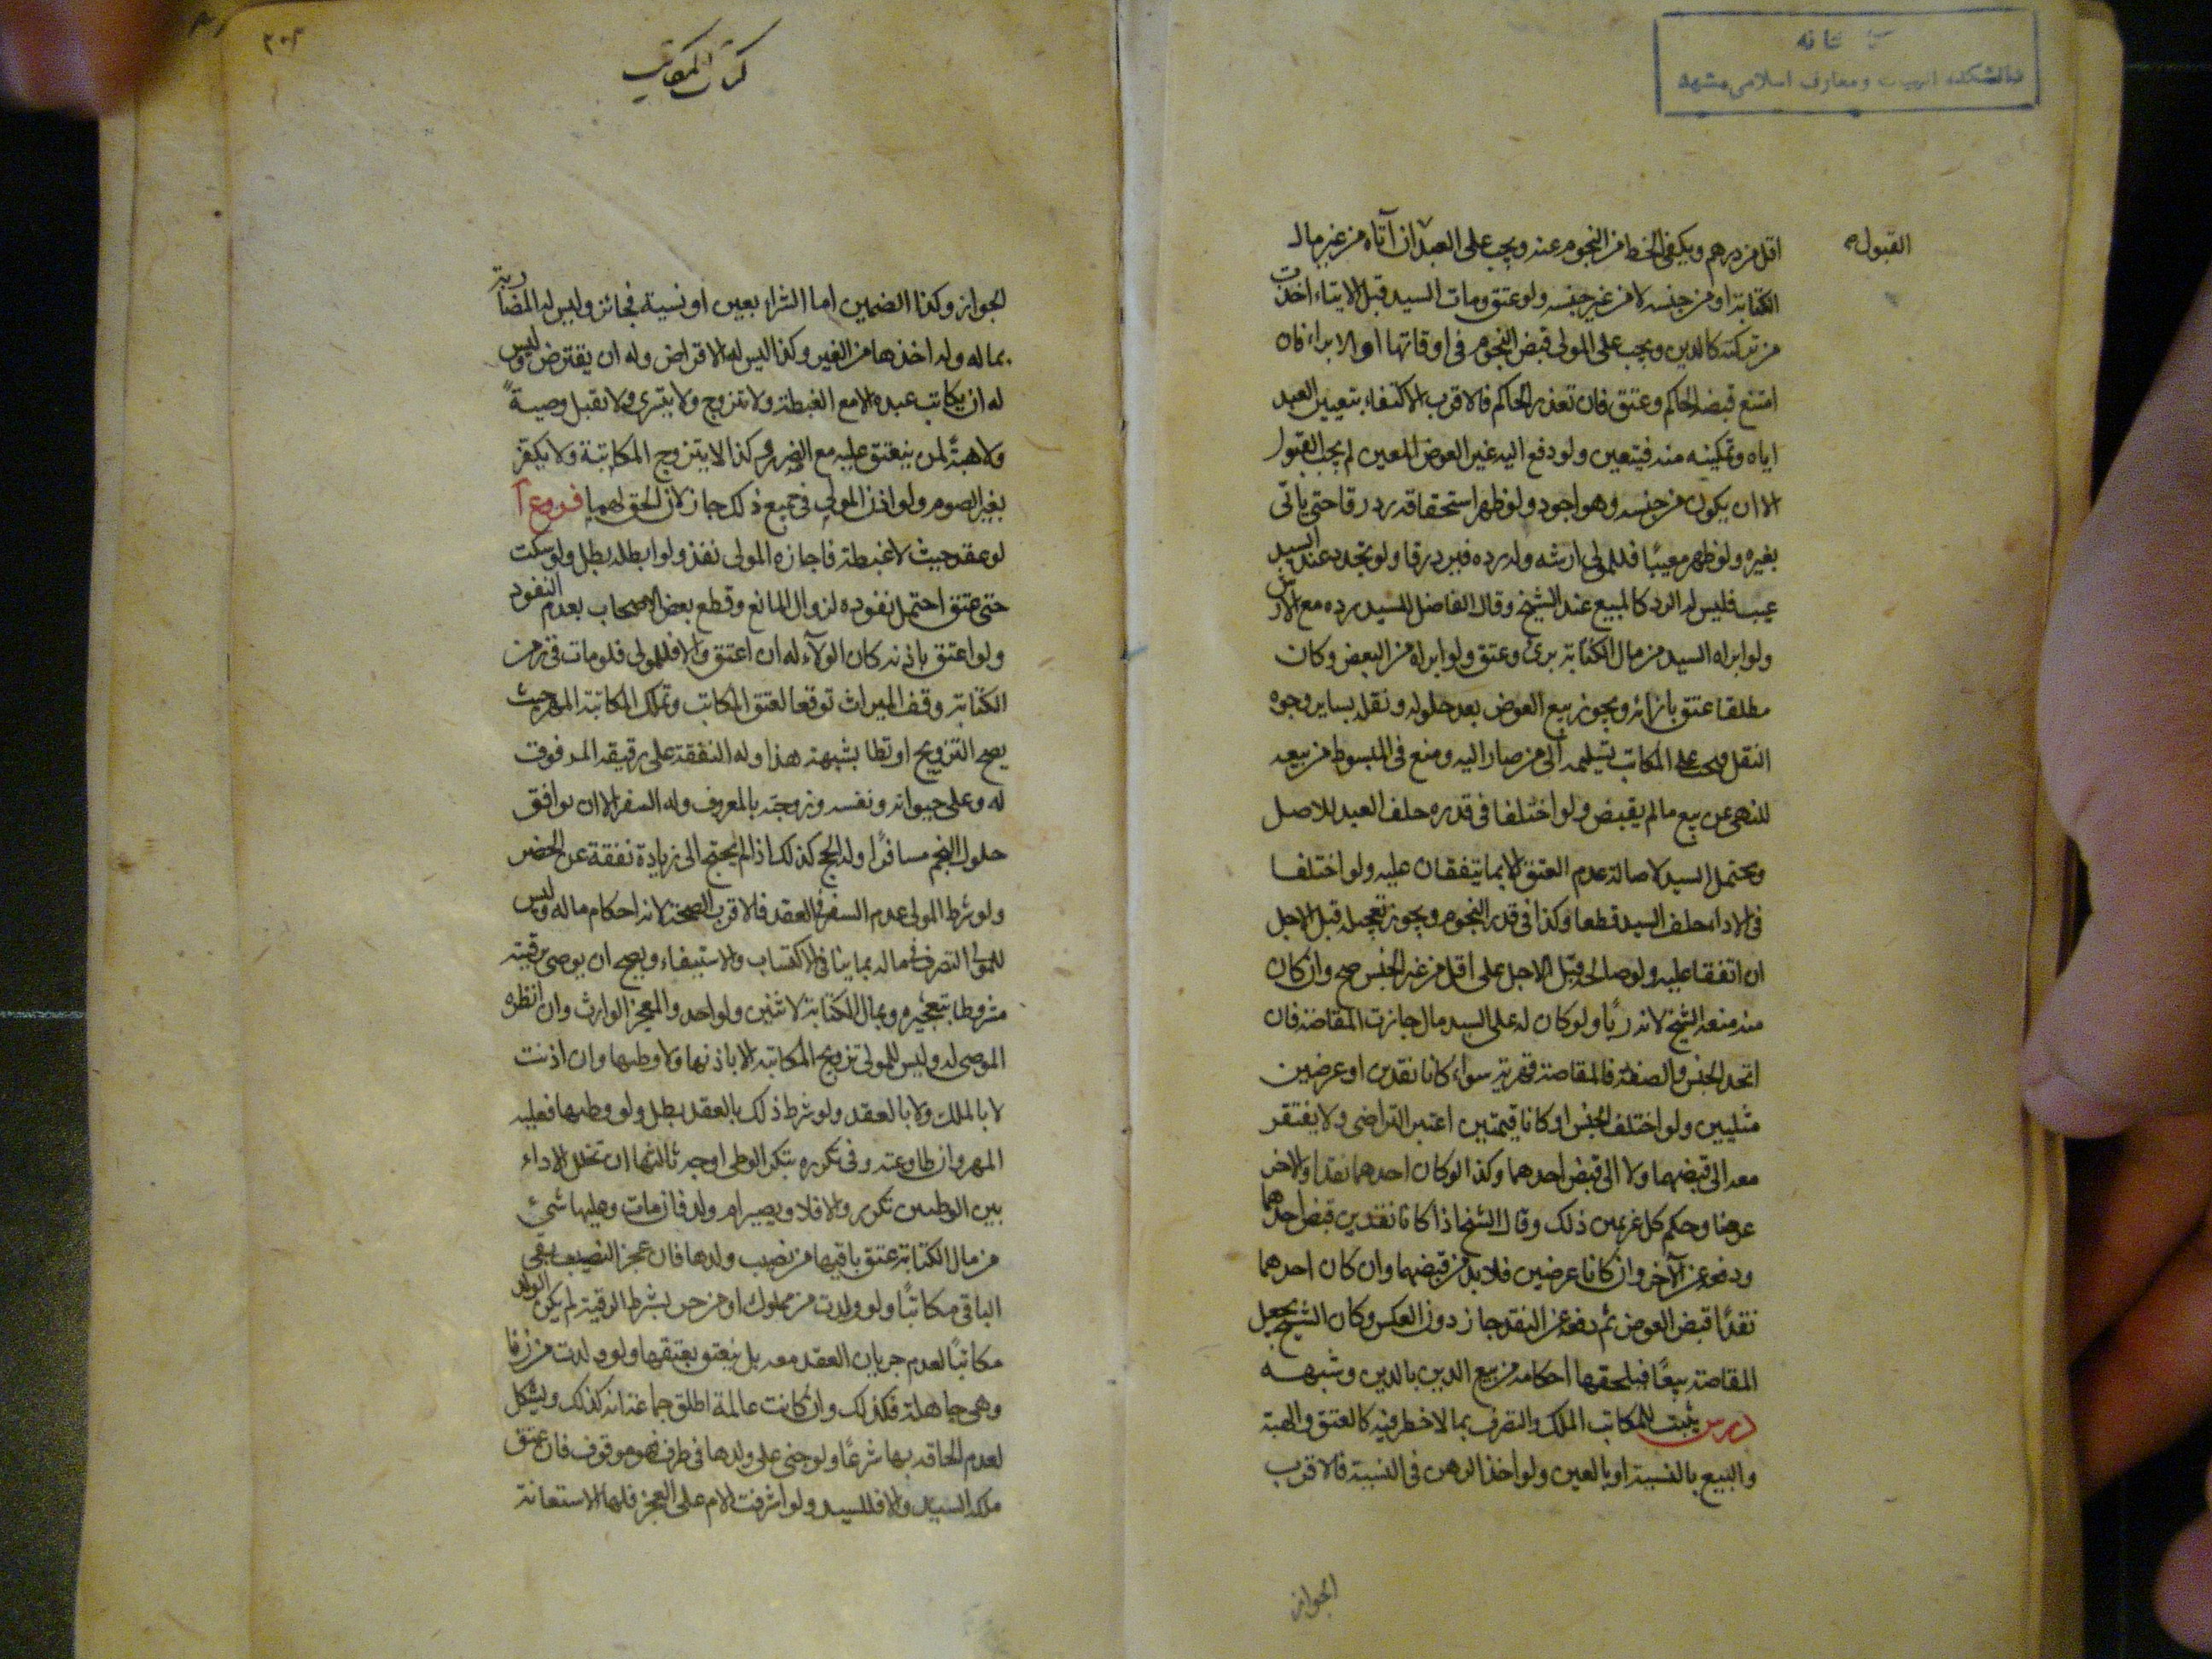 كتابخانه
دانشكده الهيات ومعارف اسلامى مشهد
القبول
اقل من درهم ويكفى الحط من النجوم عنه ويجب على العبد ان آتاه من غير مال
الكتابة او من جنسه لا من غير جنسه ولو عتق ومات السيد قبل الايتاء اخذت
من تركته كالدين ويجب على المولى قبض النجوم فى اوقاتها او الابراء فان
امتنع قبضه الحاكم وعتق فان تعذر الحاكم فالاقرب الاكتفاء بتعيين العبد
اياه وتمكينه منه فيتعين ولو دفع اليه غير العوض المعين لم يجب القبول
الا ان يكون من جنسه وهو اجود ولو ظهر استحقاقه رد رقا حتى ياتى
بغيره ولو ظهر معيبًا فللمولى ارشه وله رده فيرد رقا ولو تجدد عند السيد
عيب فليس له الرد كالمبيع عند الشيخ وقال الفاضل للسيد رده مع الارش
ولو ابراه السيد من مال الكتابة برئ وعتق ولو ابراه من البعض وكان
مطلقا عتق بازائه ويجوز بيع العوض بعد حلوله ونقله بساير وجوه
النقل ويجب على المكاتب تسليمه الى من صار اليه ومنع فى المبسوط من بيعه
للنهى عن بيع مالم يقبض ولو اختلفا فى قدره حلف العبد للاصل
ويحتمل السيد لاصالة عدم العتق الا بما يتفقان عليه ولو اختلفا
فى الاداء حلف السيد قطعا وكذا فى قدر النجوم ويجوز تعجيله قبل الاجل
ان اتفقا عليه ولو صالحه قبل الاجل على اقل من غير الجنس صح وان كان
منه منعه الشيخ لانه ربًا ولو كان له على السيد مال جازت المقاصة فان
اتحد الجنس والصفة فالمقاصة قهرية سواء كانا نقدين او عرضين
مثليين ولو اختلف الجنس او كانا قيمتين اعتبر التراضى ولا يفتقر
معه الى قبضهما ولا الى قبض احدهما وكذا لو كان احدهما نقدا والاخر
عرضا وحكم كل غريمين ذلك وقال الشيخ اذا كانا نقدين قبض احدهما
ودفعه عن الآخر وان كانا عرضين فلابد من قبضهما وان كان احدهما
نقدًا قبض العوض ثم دفعه عن النقد جاز دون العكس وكان الشيخ يجعل
المقاصة بيعًا فيلحقها احكامه من بيع الدين بالدين وشبهه
درس يثبت للمكاتب الملك والتصرف بما لا خطر فيه كالعتق والهبة
والبيع بالنسية او بالعين ولو اخذ الرهن فى النسية فالاقرب
الجواز
٢٠٢
كتاب المكاتب
الجواز وكذا الضمين اما الشراء بعين او نسية فجائز وليس له المضاربة
بماله وله اخذها من الغير وكذا ليس له الاقراض وله ان يقترض وليس
له ان يكاتب عبده الا مع الغبطة ولا يتزوج ولا يتسرى ولا تقبل وصيةً
ولا هبةً لمن ينعتق عليه مع الضرر وكذا لا يتزوج المكاتبة ولا يكفر
بغير الصوم ولو اذن المولى فى جميع ذلك جاز لان الحق لهما فروع آ
لو عقد حيث لا غبطة فاجازه المولى نفذ ولو ابطله بطل ولو سكت
حتى عتق احتمل نفوذه لزوال المانع وقطع بعض الاصحاب بعدم النفوذ
ولو اعتق باذنه كان الولآء له ان اعتق والا فللمولى فلو مات فى زمن
الكتابة وقف الميراث توقعا لعتق المكاتب وتملك المكاتبة المهر حيث
يصح التزويج او تطا بشبهة هذا وله النفقة على رقيقه المدفوقت
له وعلى حيوانه ونفسه وزوجته بالمعروف وله السفر الا ان يوافق
حلول النجم مسافرًا وله الحج كذلك اذا لم يحتج الى زيادة نفقة عن الحضر
ولو شرط المولى عدم السفر فى العقد فالاقرب الصحة لانه احكام ماله وليس
للمولى التصرف فى ماله بما ينافى الاكتساب والاستيفاء ويصح ان يوصى برقبته
مشروطا بتعجيزه وبمال الكتابة لاثنين ولواحد والمعجز الوارث وان انظره
الموصى له وليس للمولى تزويج المكاتبة الا باذنها ولا وطيها وان اذنت
لا بالملك ولا بالعقد ولو شرط ذلك بالعقد بطل ولو وطيها فعليه
المهر وان طاوعته وفى تكرره بتكرر الوطى اوجه ثالثها ان تخلل الاداء
بين الوطيين تكرر والا فلا ويصير ام ولد فان مات وعليها شىء
من مال الكتابة عتق باقيها من نصيب ولدها فان عجز النصيب بقى
الباقى مكاتبًا ولو ولدت من مملوك او من حر بشرط الرقية لم يكن الولد
مكاتبًا لعدم جريان العقد معه بل ينعتق بعتقها ولو ولدت من زنا
وهى جاهلة فكذلك وان كانت عالمة اطلق جماعة انه كذلك ويشكل
لعدم الحاقه بها شرعًا ولو جنى على ولدها فى طرف فهو موقوف فان عتق
ملكه السيد والا فللسيد ولو اشرفت الام على العجز فلها الاستعانة